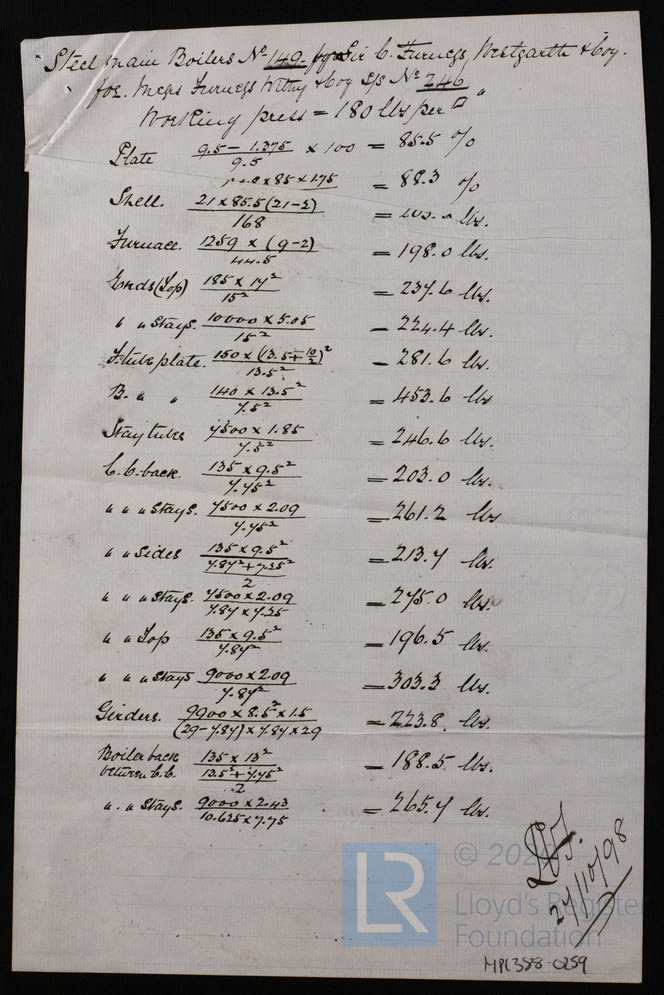 Steel Main Boilers No 149 for Sir C. Furness Westgarth & Coy.
for Messrs Furness Withy & Coy S/S No 246
Working press = 180 lbs per □"
Plate (9.5 - 1.375)/9.5 × 100 = 85.5 %
× 85 × 175 = 88.3 %
Shell. 21 × 85.5 (21-2)/168 = lbs.
Furnace. 1259 × (9-2)/44.5 = 198.0 lbs.
Ends (Top) 185 × 17²/15² = 237.6 lbs.
" " Stays. 10000 × 5.05/15² = 224.4 lbs.
F. tube plate. 150 × (13.5 + 10/2)²/13.5² = 281.6 lbs.
B. " " 140 × 13.5²/7.5² = 453.6 lbs.
Stay tubes 7500 × 1.85/7.5² = 246.6 lbs.
C.C. back. 135 × 9.5²/7.75² = 203.0 lbs.
" " " Stays. 7500 × 2.09/7.75² = 261.2 lbs
" " Sides 135 × 9.5²/(7.87² + 7.25²)/2 = 213.7 lbs.
" " " Stays. 7500 × 2.09/7.87 × 7.25 = 275.0 lbs.
" " Top 135 × 9.5²/7.87² = 196.5 lbs.
" " " Stays 9000 × 2.09/7.87² = 303.3 lbs.
Girders. 9900 × 8.5² × 1.5/(29-7.87) × 7.87 × 29 = 223.8 lbs.
Boiler back between C.C. 135 × 13²/(13.5² + 7.75²)/2 = 188.5 lbs.
" " Stays. 9000 × 2.43/10.625 × 7.75 = 265.7 lbs.
24/10/98
© 202
LR Lloyd's Register
Foundation
MPL388-0259